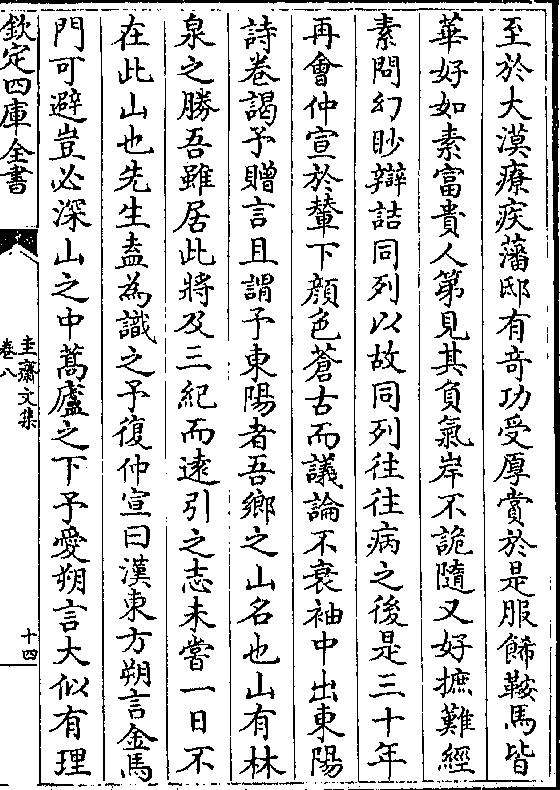 至於大漠療疾藩邸有竒功受厚賞於是服餙鞍馬皆
華好如素富貴人第見其負氣岸不詭隨又好摭難經
素問幻眇辯詰同列以故同列往往病之後是三十年
再會仲宣於輦下顔色蒼古而議論不衰袖中出東陽
詩卷謁予贈言且謂予東陽者吾鄉之山名也山有林
泉之勝吾雖居此將及三紀而逺引之志未嘗一日不
在此山也先生盍為識之予復仲宣曰漢東方朔言金馬
門可避豈必深山之中蒿廬之下予愛朔言大似有理
欽定四庫全書
圭齋文集
卷八
十四